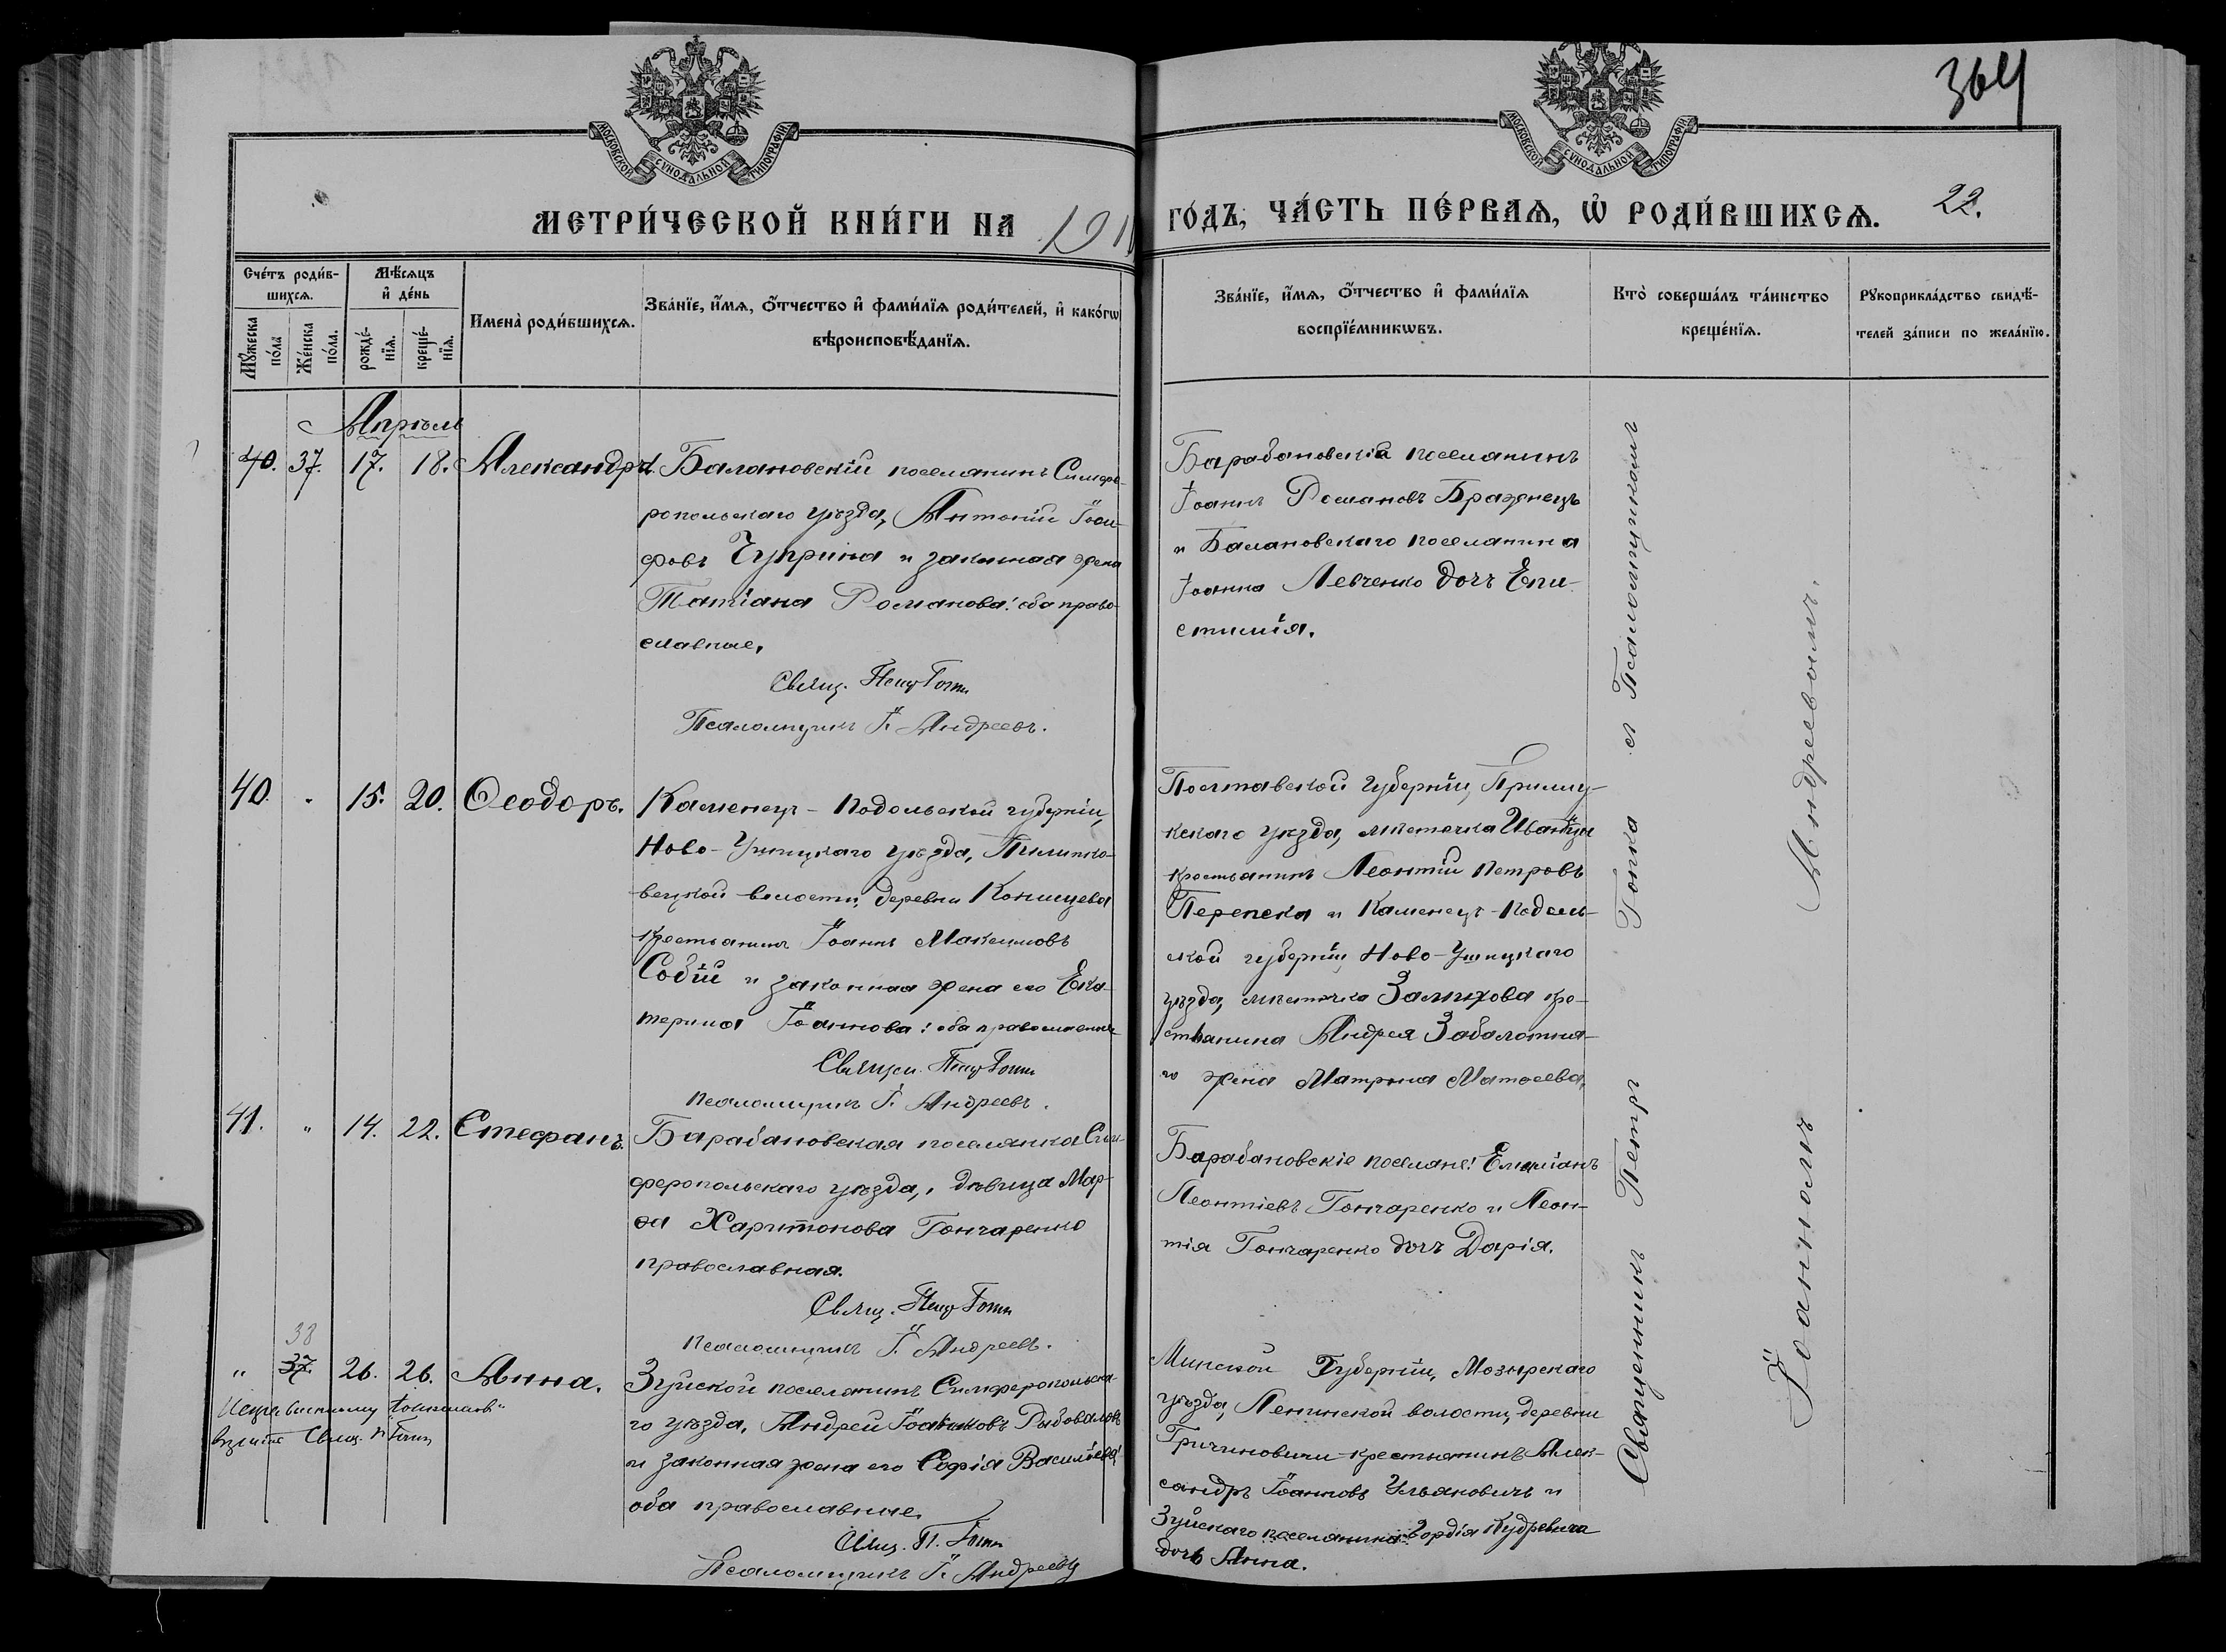 364
МОСКОВСКОЙ СѴНОДАЛЬНОЙ ТИПОГРАФІИ
МОСКОВСКОЙ СѴНОДАЛЬНОЙ ТИПОГРАФІИ
МЕТРИ́ЧЕСКОЙ КНИ́ГИ НА 191
ГО́ДЪ, ЧА́СТЬ ПЕ́РВАѦ, Ѡ҆ РОДИ́ВШИХСѦ. 22.
Сче́тъ роди́в-
шихсѧ.
Мѹ́жеска
по́ла
Же́нска
по́ла.
Мѣ́сѧцъ
и҆ де́нь
рожде́-
нїѧ.
креще́-
нїѧ.
Имена̀ роди́вшихсѧ.
Зва́нїе, и҆́мѧ, ѻ҆́тчество и҆ фами́лїѧ роди́телей, и҆ како́гѡ
вѣроисповѣ́данїѧ.
Зва́нїе, и҆́мѧ, ѻ҆́тчество и҆ фами́лїѧ
воспрїе́мникѡвъ.
Кто̀ соверша́лъ та́инство
креще́нїѧ.
Рꙋкоприкла́дство свидѣ́-
телей за́писи по жела́нїю.
Апрѣль
40. 37. 17. 18. Александра
Балановскій поселянинъ Симфе-
ропольскаго уѣзда, Антоній Іоси-
фовъ Чуприна и законная жена
Татіана Романова: оба право-
славные.
Свящ.
Псаломщикъ І. Андреевъ.
Барабановскій поселянинъ
Іоаннъ Романовъ Браженецъ
и Балановскаго поселянина
Іоанна Левченко дочь Епи-
стимія.
40. " 15. 20. Ѳеодоръ.
Каменец-Подольской губерніи,
Ново-Ушицкаго уѣзда,
вецкой волости, деревни Конищева
крестьянинъ Іоаннъ Максимовъ
Собій и законная жена его Ека-
терина Іоаннова: оба православные
Священ.
Псаломщикъ І. Андреевъ.
Полтавской губерніи, Прилу-
кскаго уѣзда, мѣстечка
крестьянинъ Леонтій Петровъ
Перепека и Каменец-Подоль-
ской губерніи, Ново-Ушицкаго
уѣзда, мѣстечка Залихова кре-
стьянина Андрея Заболотна-
го жена Матрона Матѳеева.
41. " 14. 22. Стефанъ.
Барабановская поселянка Сим-
феропольскаго уѣзда, дѣвица Мар-
ѳа Харитонова Гончаренко
православная.
Свящ.
Псаломщикъ І. Андреевъ.
Барабановскіе поселяне: Емиліанъ
Леонтіевъ Гончаренко и Леон-
тія Гончаренко дочь Дарія.
38
" 37. 26. 26. Анна.
Зуйской поселянинъ Симферопольска-
го уѣзда, Андрей Рыбоваловъ
и законная жена его Софія Васильева:
оба православные.
Свящ. П.
Псаломщикъ І. Андреевъ
Минской Губерніи, Мозырскаго
уѣзда, Ленинской волости, деревни
Гричиновичи крестьянинъ Алек-
сандръ Іоанновъ Ульяновичъ и
Зуйскаго поселянина Гордія Кудревича
дочь Анна.
Священникъ Петръ и Псаломщикомъ
Іоанномъ Андреевымъ.